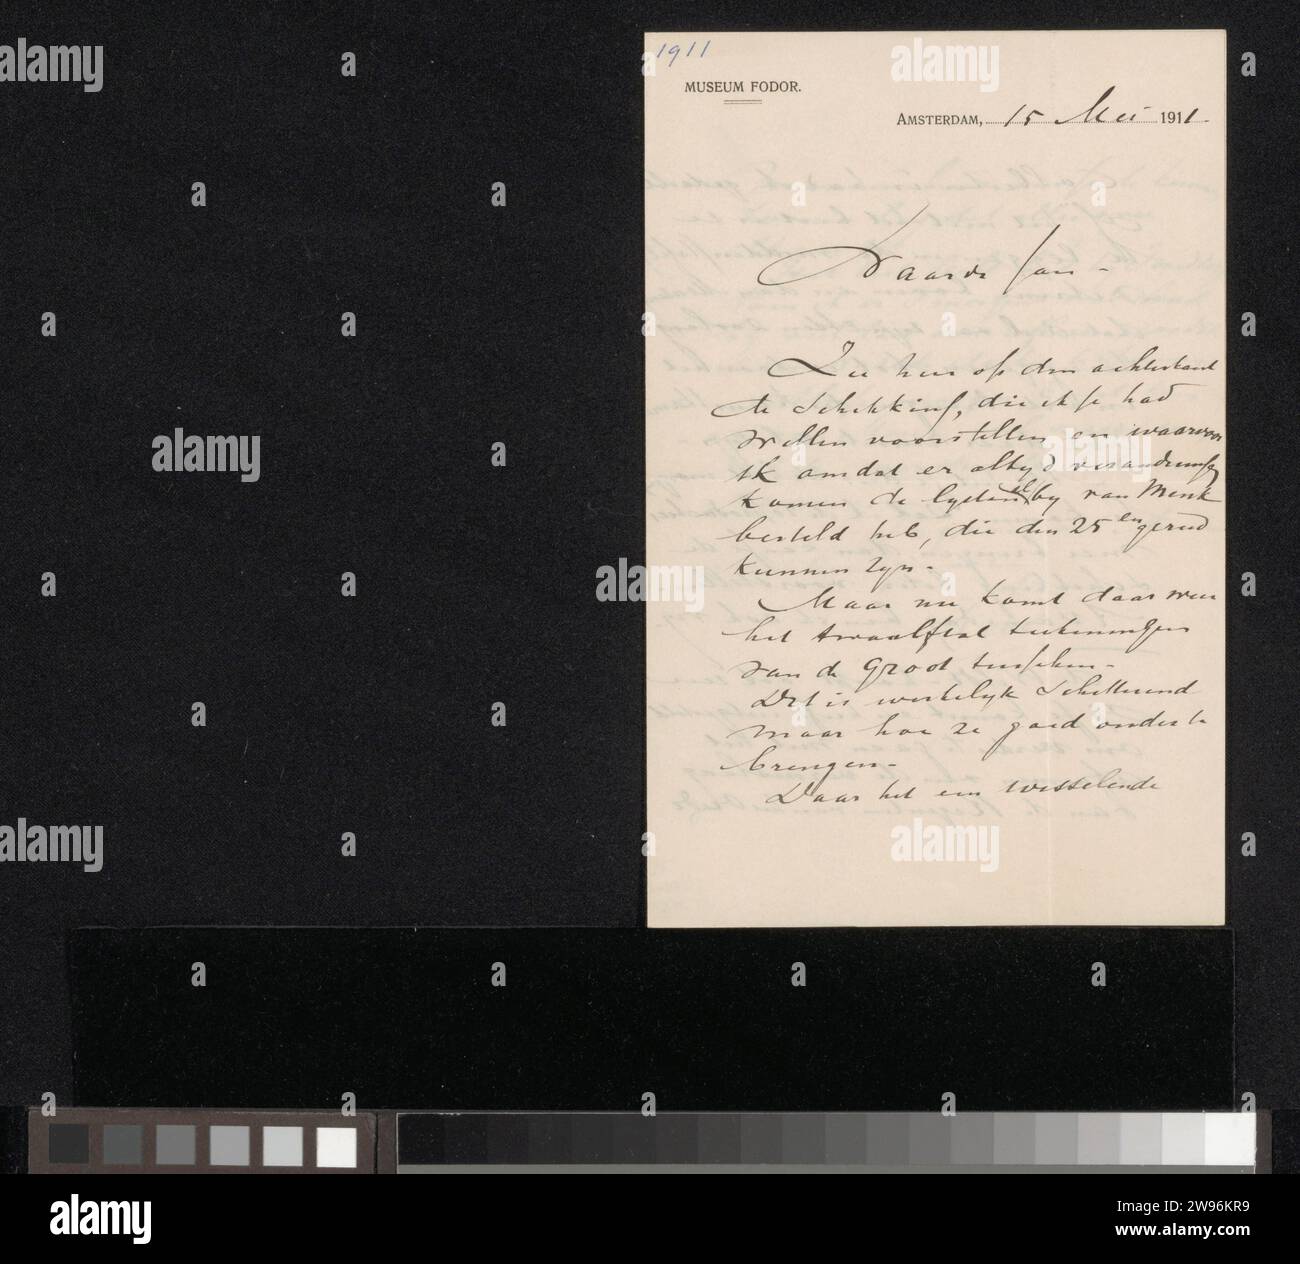 1911
MUSEUM FODOR.
AMSTERDAM, 15 Mei 1911.
Waarde Jan -
Zie hier op den achterkant
de schikking, die ik je had
willen voorstellen en waarvoor
ik omdat er altyd verandering
komen de lysten al by van Menk
besteld heb, die den 25en gereed
kunnen zyn -
Maar nu komt daar weer
het twaalftal teekeningen
van de Groot tusschen -
Dat is werkelyk schitterend
maar hoe ze goed onder te
brengen -
Daar het een wisselende
alamy
Image ID: 2W96KR9
www.alamy.com